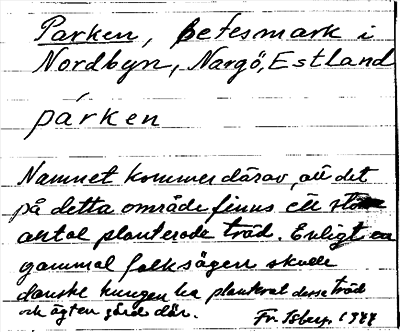 Parken, Betesmark i
Nordbyn, Nargö, Estland
párken
Namnet kommer därav, att det
på detta område finns ett stort
antal planterade träd. Enligt en
gammal folksägen skulle
danske kungen ha planterat dessa träd
och ägt en gård där.
Fr. 1944